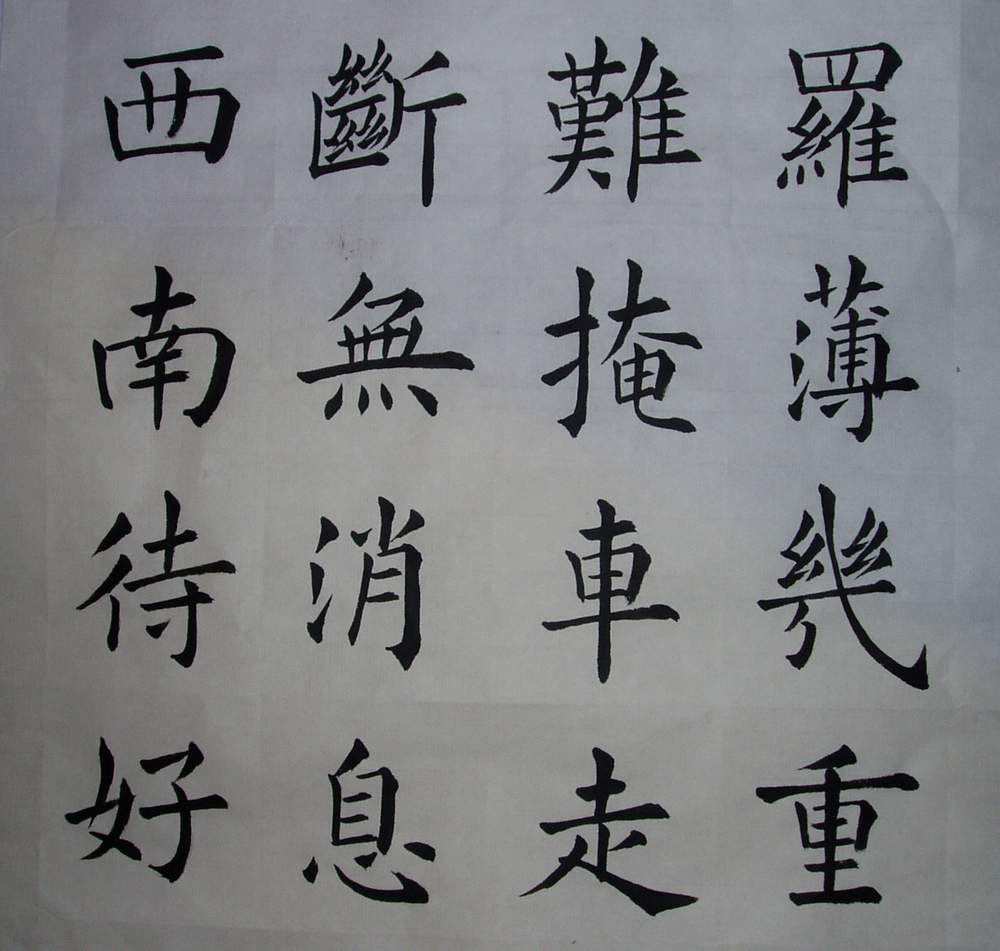 羅薄幾重
難掩車走
斷無消息
西南待好